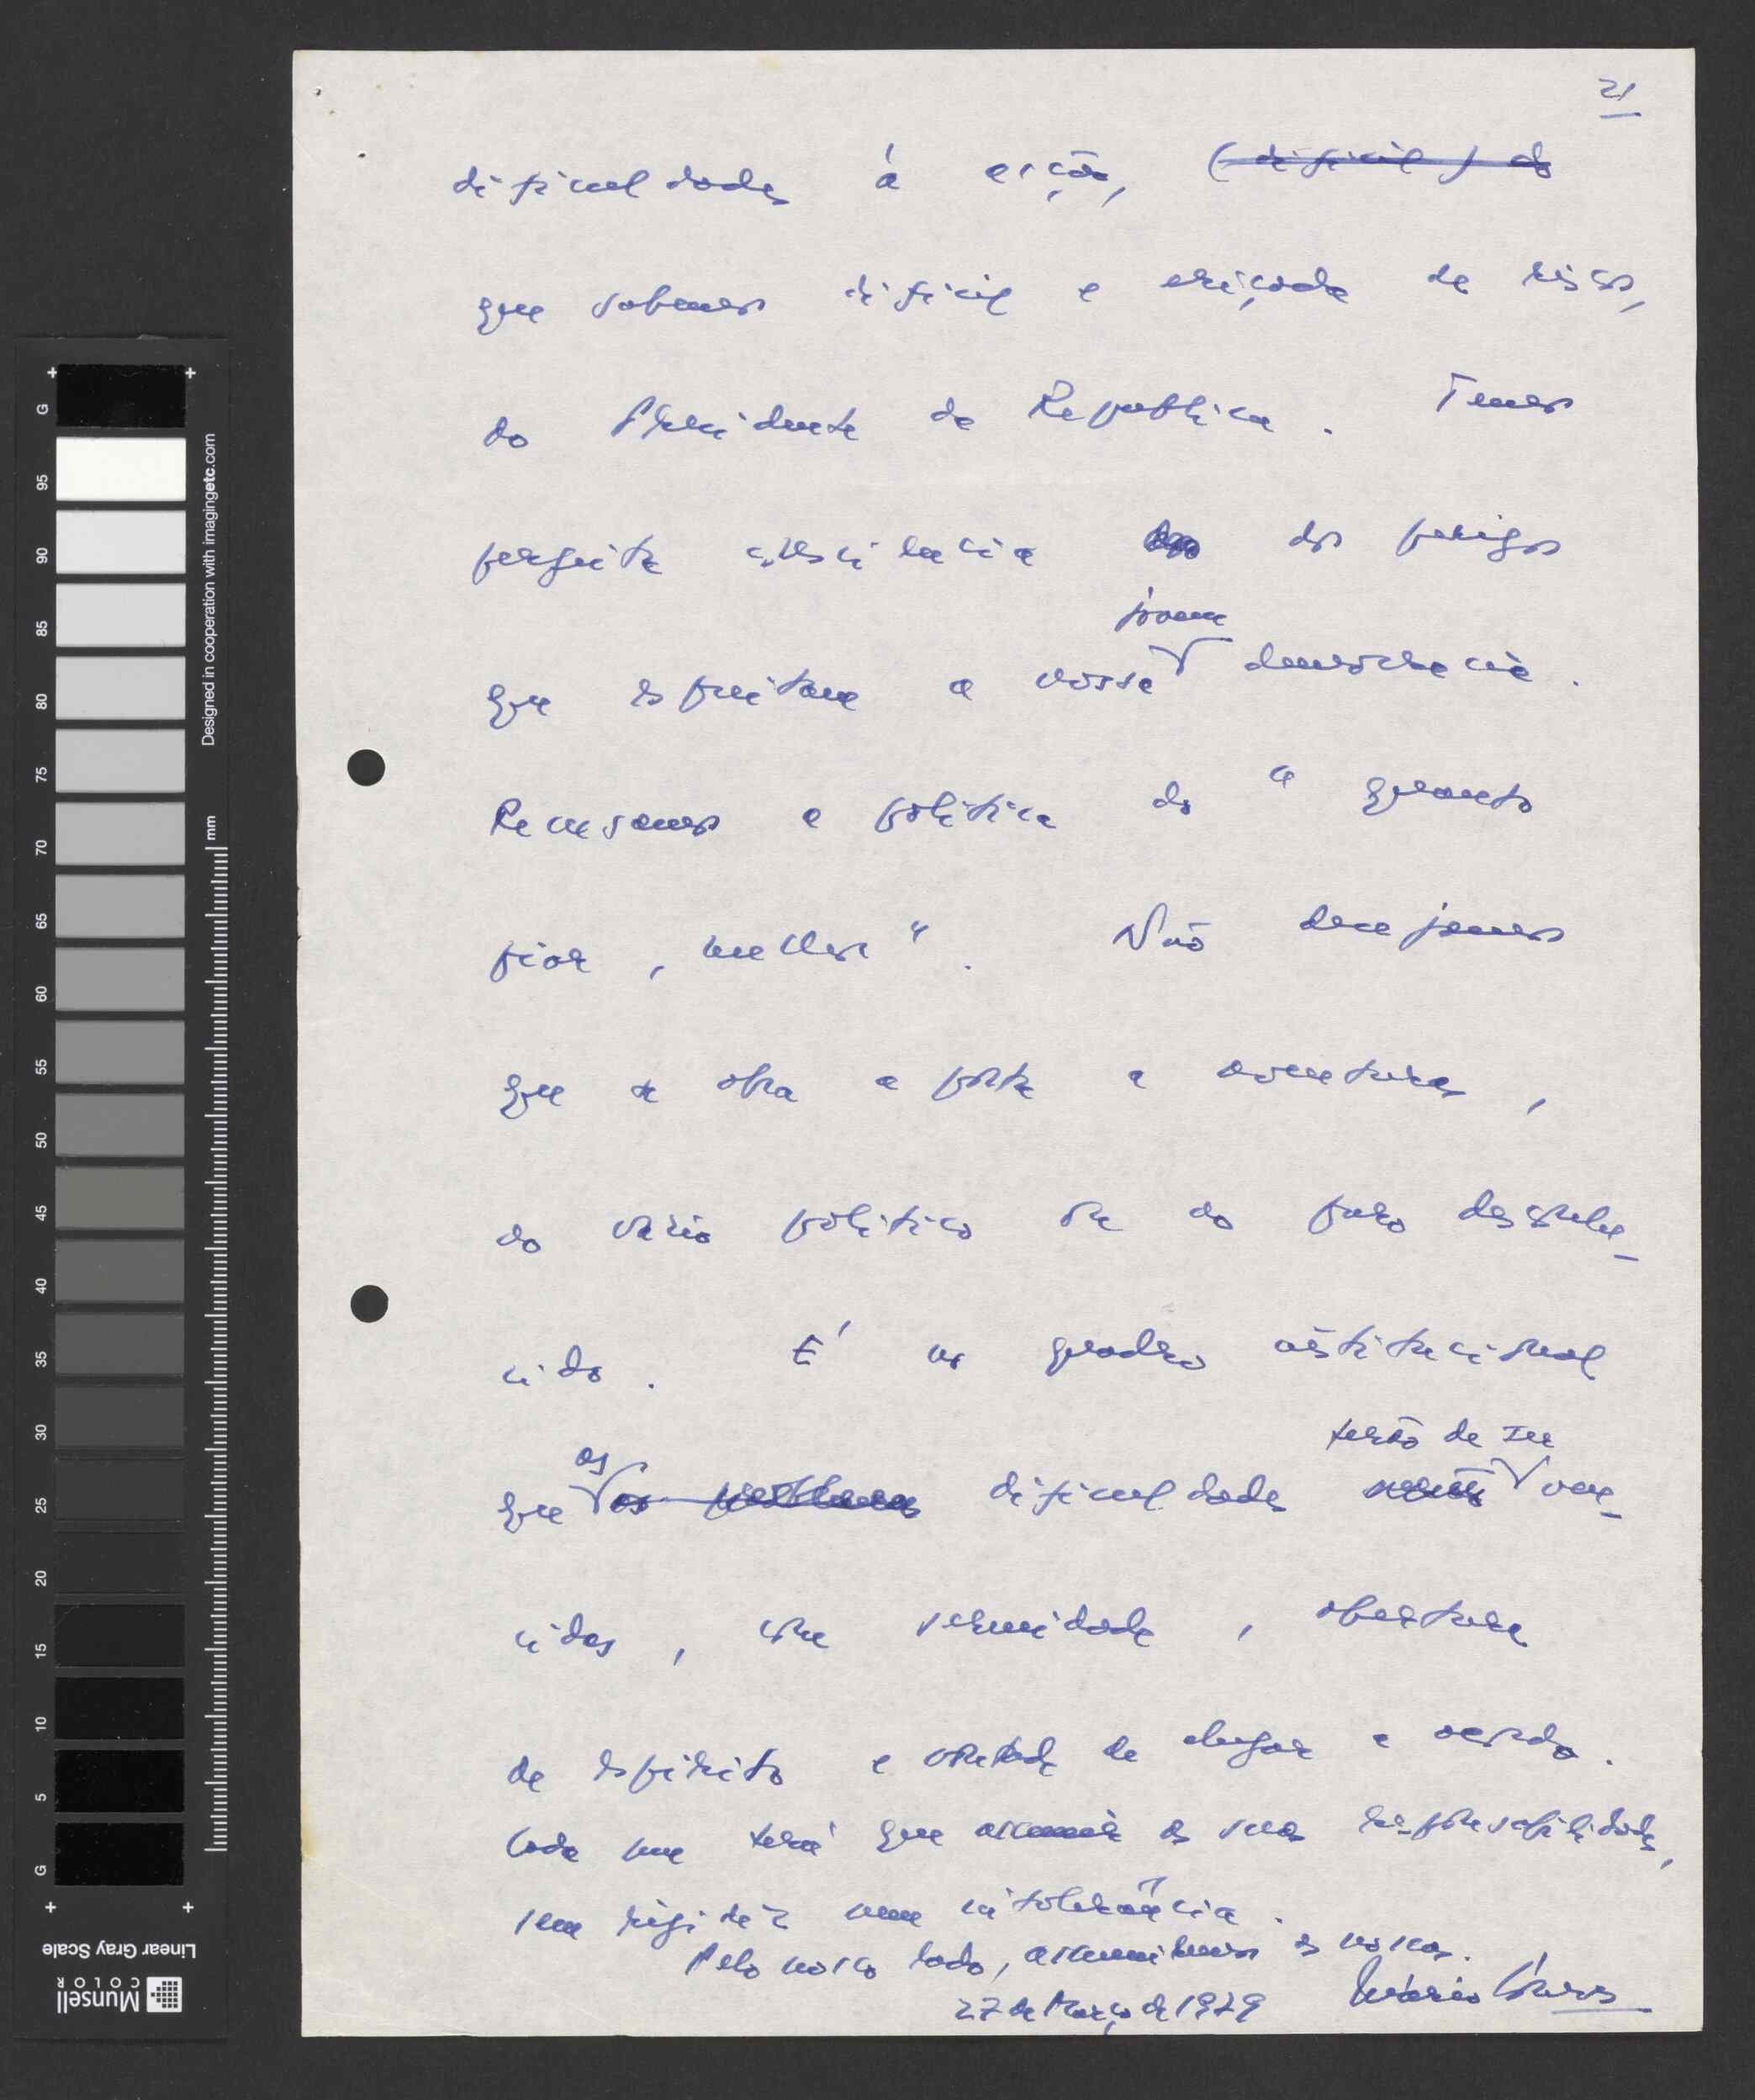 21
dificuldades à acção, (difícil) do
que sabemos difícil e eriçada de riscos,
do Presidente da República. Temos
perfeita consciência dos perigos
jovem
que espreitam a nossa democracia.
Recusamos a política do "quanto
pior, melhor". Não desejamos
que se abra a porta a aventuras,
do vazio político ou do puro desconhe-
cido. É no quadro institucional
terão de ser
que as os problemas dificuldades serão ven-
cidas, com serenidade, abertura
de espírito e vontade de chegar a acordo.
Cada um terá que assumir as suas responsabilidades,
sem rigidez nem intolerância.
Pelo nosso lado, assumiremos as nossas.
27 de Março de 1979 Mário Soares
G
95
90
85
80
75
70
65
60
55
50
45
40
35
30
25
20
15
10
5
G
mm
Designed in cooperation with imagingetc.com
Linear Gray Scale
Munsell
COLOR